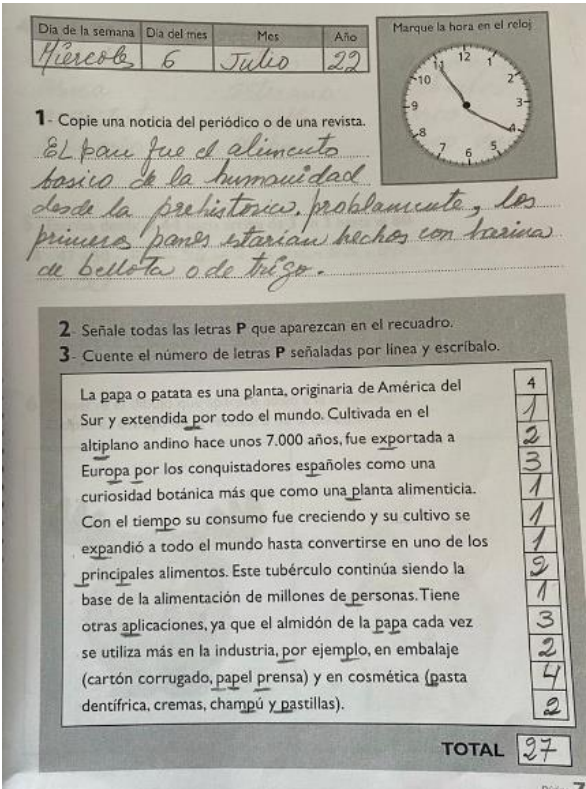 Día de la semana Día del mes Mes Año
Miércoles 6 Julio 22
Marque la hora en el reloj
12
11 1
10 2
9 3
8 4
7 5
6
1- Copie una noticia del periódico o de una revista.
EL pan fue el alimento
basico de la humanidad
desde la prehistorica, problamente, los
primeros panes estarian hechos con harina
de bellota o de trigo.
2- Señale todas las letras P que aparezcan en el recuadro.
3- Cuente el número de letras P señaladas por línea y escríbalo.
La papa o patata es una planta, originaria de América del 4
Sur y extendida por todo el mundo. Cultivada en el 1
altiplano andino hace unos 7.000 años, fue exportada a 2
Europa por los conquistadores españoles como una 3
curiosidad botánica más que como una planta alimenticia. 1
Con el tiempo su consumo fue creciendo y su cultivo se 1
expandió a todo el mundo hasta convertirse en uno de los 1
principales alimentos. Este tubérculo continúa siendo la 2
base de la alimentación de millones de personas. Tiene 1
otras aplicaciones, ya que el almidón de la papa cada vez 3
se utiliza más en la industria, por ejemplo, en embalaje 2
(cartón corrugado, papel prensa) y en cosmética (pasta 4
dentífrica, cremas, champú y pastillas). 2
TOTAL 27